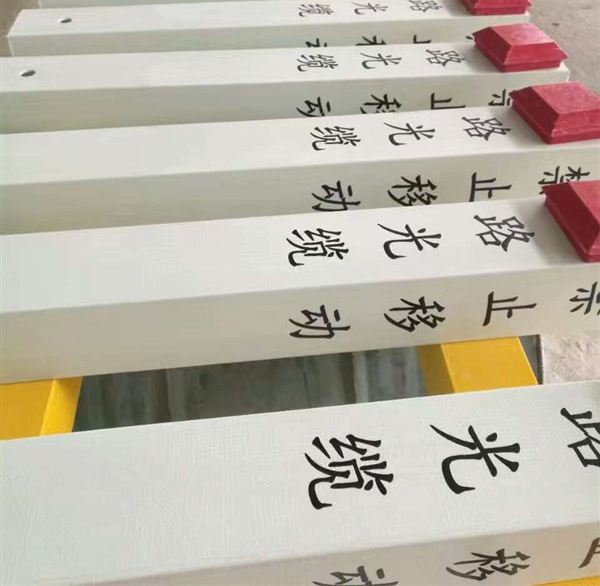 光缆
止移动
路光缆
禁止移动
路光缆
禁止移动
路光缆
禁止移动
路光缆
止移动